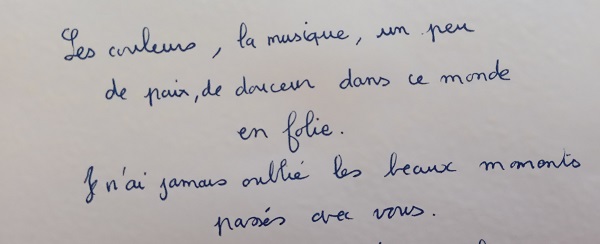 Les couleurs, la musique, un peu
de paix, de douceur dans ce monde
en folie.
Je n'ai jamais oublié les beaux moments
passés avec vous.